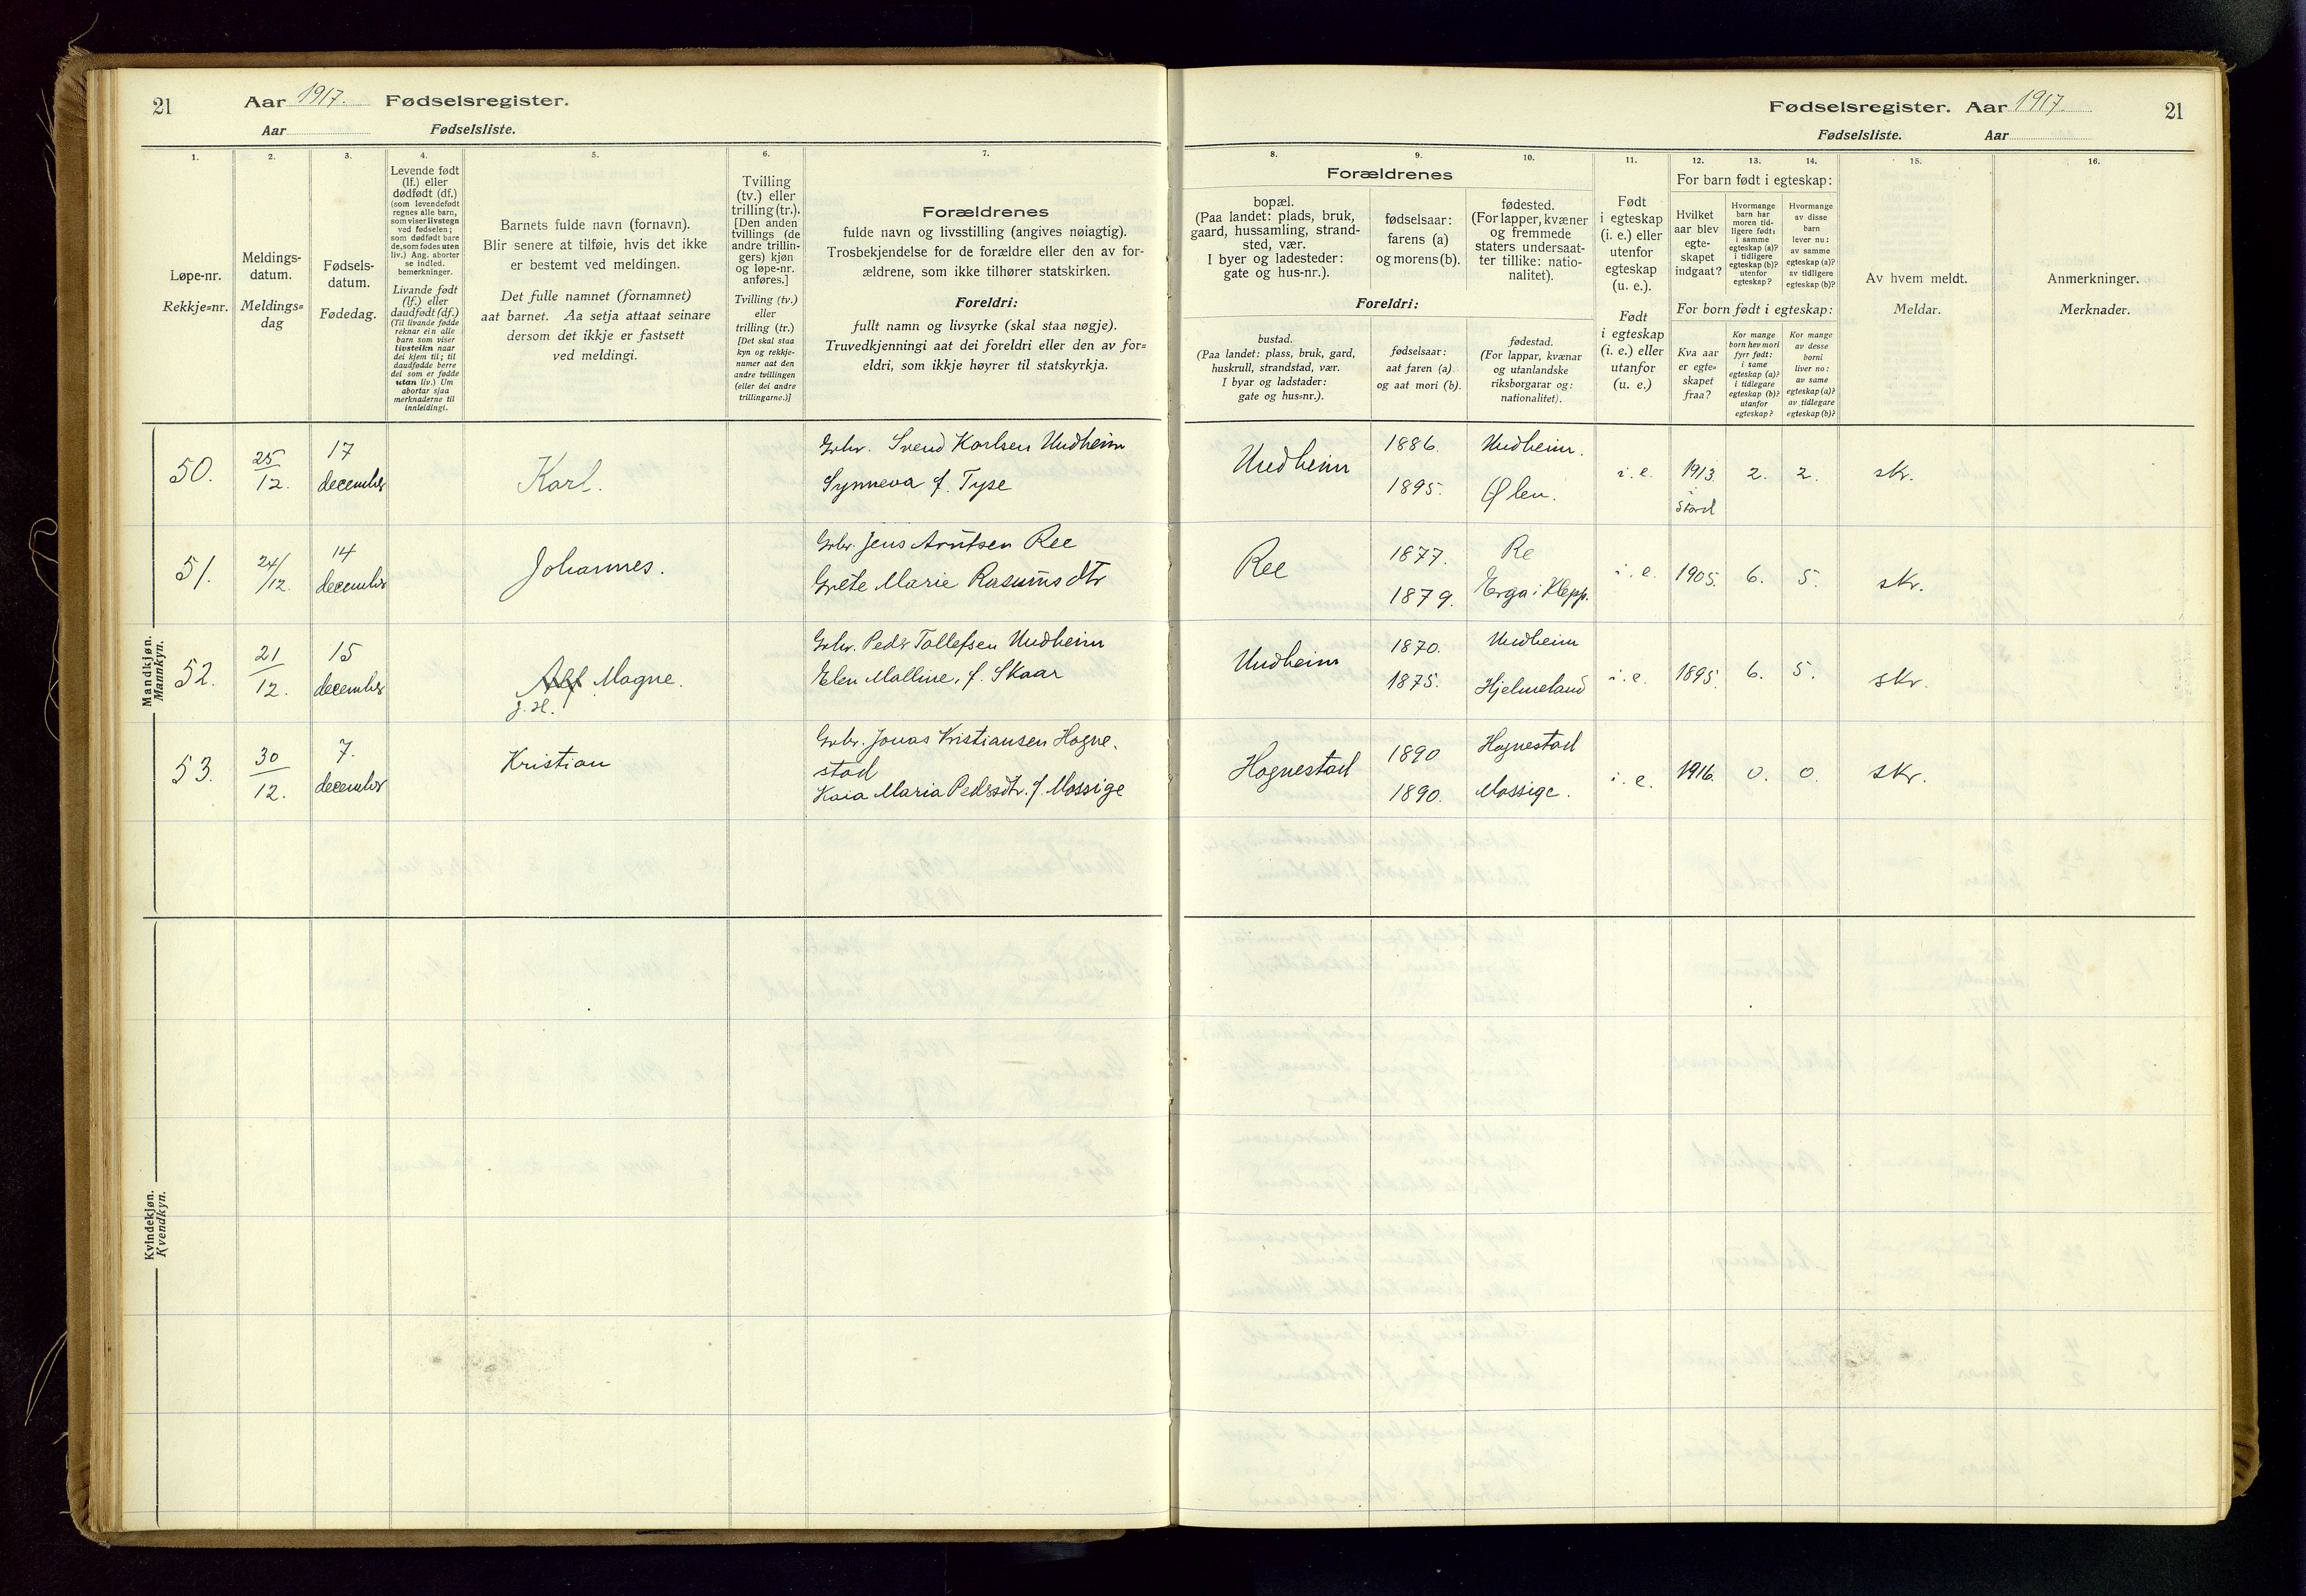 21 Aar 1917. Fødselsregister.
Aar Fødselsliste.
1. 2. 3. 4. 5. 6. 7.
Løpe-nr.
Rekkje=nr.
Meldings-
datum.
Meldings=
dag
Fødsels-
datum.
Fødedag.
Levende født
(lf.) eller
dødfødt (df.)
(som levendefødt
regnes alle barn,
som viser livstegn
ved fødselen;
som dødfødt bare
de, som fødes uten
liv.) Ang. aborter
se indled.
bemerkninger.
Livande født
(lf.) eller
daudfødt (df.)
(Til livande fødde
reknar ein alle
barn som viser
livsteikn naar
dei kjem til; til
daudfødde berre
dei som er fødde
utan liv.) Um
abortar sjaa
merknaderne til
innleidingi.
Barnets fulde navn (fornavn).
Blir senere at tilføie, hvis det ikke
er bestemt ved meldingen.
Det fulle namnet (fornamnet)
aat barnet. Aa setja attaat seinare
dersom det ikkje er fastsett
ved meldingi.
Tvilling
(tv.) eller
trilling (tr.).
[Den anden
tvillings (de
andre trillin-
gers) kjøn
og løpe-nr.
anføres.]
Tvilling (tv.)
eller
trilling (tr.)
[Det skal staa
kyn og rekkje-
numer aat den
andre tvillingen
(eller dei andre
trillingarne.)]
Forældrenes
fulde navn og livsstilling (angives nøiagtig).
Trosbekjendelse for de forældre eller den av for-
ældrene, som ikke tilhører statskirken.
Foreldri:
fullt namn og livsyrke (skal staa nøgje).
Truvedkjenningi aat dei foreldri eller den av for=
eldri, som ikkje høyrer til statskyrkja.
Mandkjøn.
Mannkyn.
50. 25/12. 17 december Karl.
Grbr. Svend Karlsen Undheim
Synneva f. Tyse
51. 24/12. 14 december Johannes.
Grbr. Jens Arntsen Ree
Grete Marie Rasmusdtr
52. 21/12. 15 december Alf Magne.
Grbr. Peder Tollefsen Undheim
Elen Malline, f. Skaar
53. 30/12. 7. december Kristian
Grbr. Jonas Kristiansen Hogne-
stad
Kaia Maria Pedersdtr. f. Mossige
Kvindekjøn.
Kvendkyn.
Fødselsregister. Aar 1917. 21
Fødselsliste. Aar
8. 9. 10. 11. 12. 13. 14. 15. 16.
Forældrenes
bopæl.
(Paa landet: plads, bruk,
gaard, hussamling, strand-
sted, vær.
I byer og ladesteder:
gate og hus-nr.).
fødselsaar:
farens (a)
og morens (b).
fødested.
(For lapper, kvæner
og fremmede
staters undersaat-
ter tillike: natio-
nalitet).
Foreldri:
bustad.
(Paa landet: plass, bruk, gard,
huskrull, strandstad, vær.
I byar og ladstader:
gate og hus=nr.).
fødselsaar:
aat faren (a)
og aat mori (b).
fødestad.
(For lappar, kvænar
og utanlandske
riksborgarar og:
nationalitet).
Født
i egteskap
(i. e.) eller
utenfor
egteskap
(u. e.).
Født
i egteskap
(i. e.) eller
utanfor
(u. e.)
For barn født i egteskap:
Hvilket
aar blev
egte-
skapet
indgaat?
Hvormange
barn har
moren tid-
ligere født:
i samme
egteskap (a)?
i tidligere
egteskap (b)?
utenfor
egteskap?
Hvormange
av disse
barn
lever nu:
av samme
egteskap (a)?
av tidligere
egteskap (b)?
For born født i egteskap:
Kva aar
er egte=
skapet
fraa?
Kor mange
born hev mori
fyrr født:
i same
egteskap (a)?
i tidlegare
egteskap (b)?
utanfor
egteskap?
Kor mange
av desse
borni
liver no:
av same
egteskap (a)?
av tidlegare
egteskap (b)?
Av hvem meldt.
Meldar.
Anmerkninger.
Merknader.
Undheim 1886. Undheim. i. e. 1913. 2. 2. skr.
1895. Ølen. Stord
Ree 1877. Re i. e. 1905. 6. 5. skr.
1879. Erga i Klepp.
Undheim 1870. Undheim i. e. 1895. 6. 5. skr.
1875. Hjelmeland
Hognestad 1890 Hognestad i. e. 1916. 0. 0. skr.
1890. Mossige.